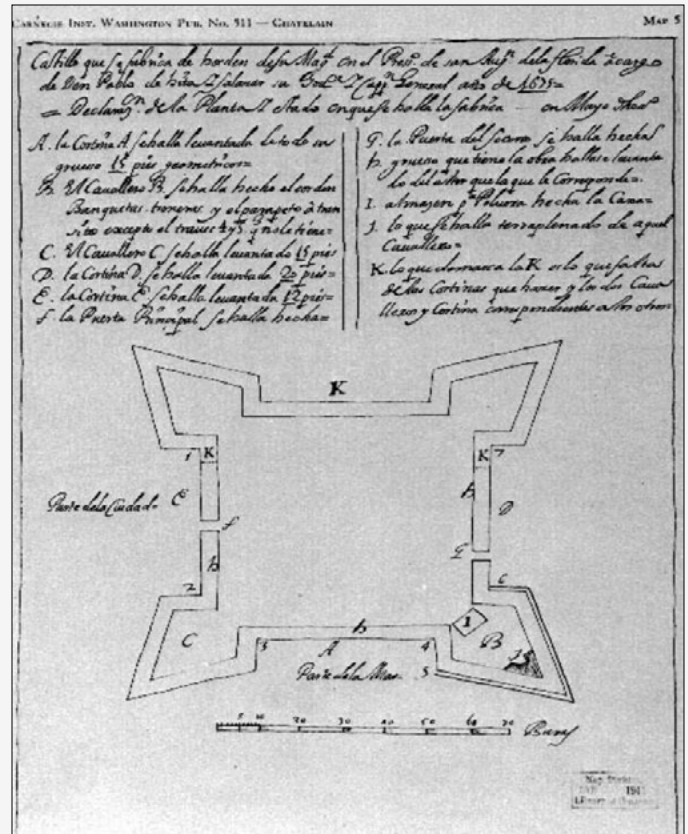 CARNEGIE INST. WASHINGTON PUB. No. 511 — CHATELAIN
MAP 5
Castillo que se fabrica de horden de su Magt. en el Presio. de san Augn. de la florida a cargo
de Don Pablo de hita Salazar su Govr. y Cappn. General año de 1675=
= Declarazn. de la Planta y estado en que se halla la fabrica — en Mayo
A. la Cortina A se halla levantada de su
grueso 15 pies geometricos=
B. El Cavallero B. se halla hecho el cordon
Banquetas, troneras, y el parapeto
excepto el
C. El Cavallero C se halla levantado 15 pies
D. la Cortina D. se halla levantada 20 pies=
E. la Cortina E. se halla levantada 12 pies=
f. la Puerta Principal se halla hecha=
G. la Puerta del Socorro se halla hecha
h. grueso que tiene la obra
que la que le Corresponde=.
I. almazen pa. Polvora hecha la Cava=
J. lo que se halla terraplenado de aquel
Cavallero=
K. lo que demarca la K es lo que falta
de las Cortinas que hacer y los dos Cava
lleros y Cortina correspondientes a los otros=
K
1 K
K 7
Parte de la Ciudad= E
h D
f
G
h
2
6
C
I
B
J
h
3 A 4
Parte de la Mar. 5
5 10 20 30 40 50 60 70 Baras
Map Division
1941
Library of Congress